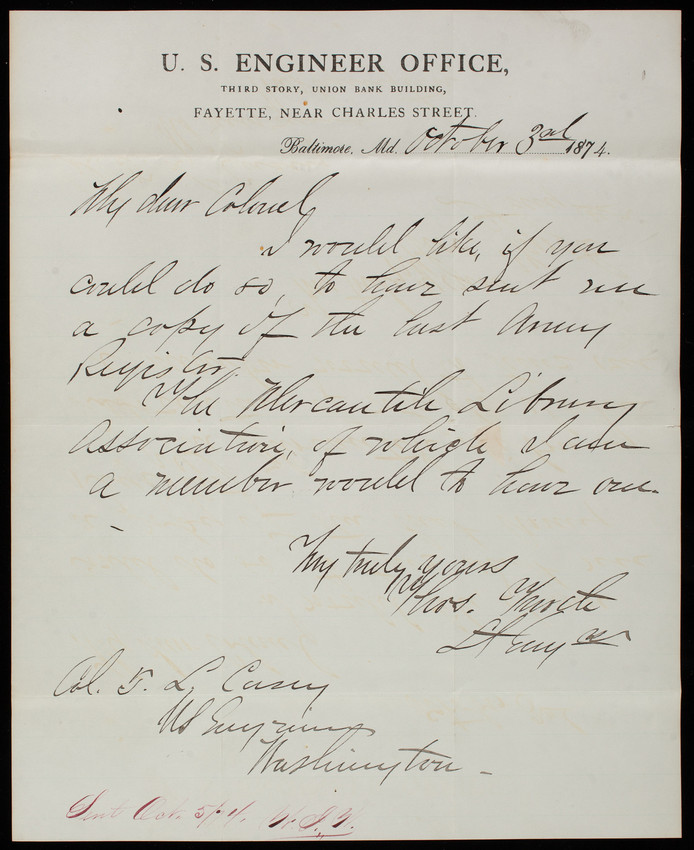 U. S. ENGINEER OFFICE,
THIRD STORY, UNION BANK BUILDING,
FAYETTE, NEAR CHARLES STREET.
Baltimore, Md. October 3rd 1874.
My dear Colonel,
I would like, if you
could do so, to have sent me
a copy of the last Army
Register.
The Mercantile Library
Association, of which I am
a member would to have one.
Very truly yours
Thos. Turtle
Lt Engrs
Col. T. L. Casey
US Engineers
Washington -
Sent Oct. 5/74.